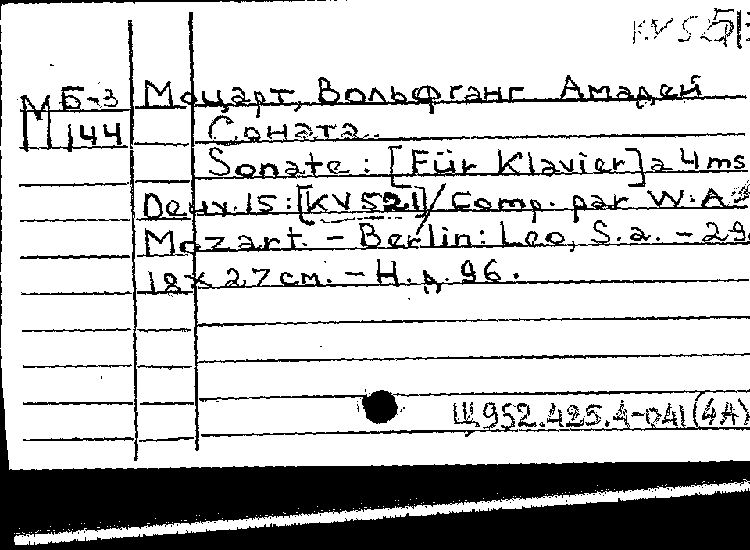 KV 5
Б-3 Моцарт, Вольфганг Амадей
М 144 Соната.
Sonate: [Für Klavier] a 4ms
Oeuv. 15: [KV 521] / Comp. par W. A.
Mozart. - Berlin: Leo, S. a. - 29
18 x 27 см. - Н. д. 96.
Щ952.425.4-041(4А)